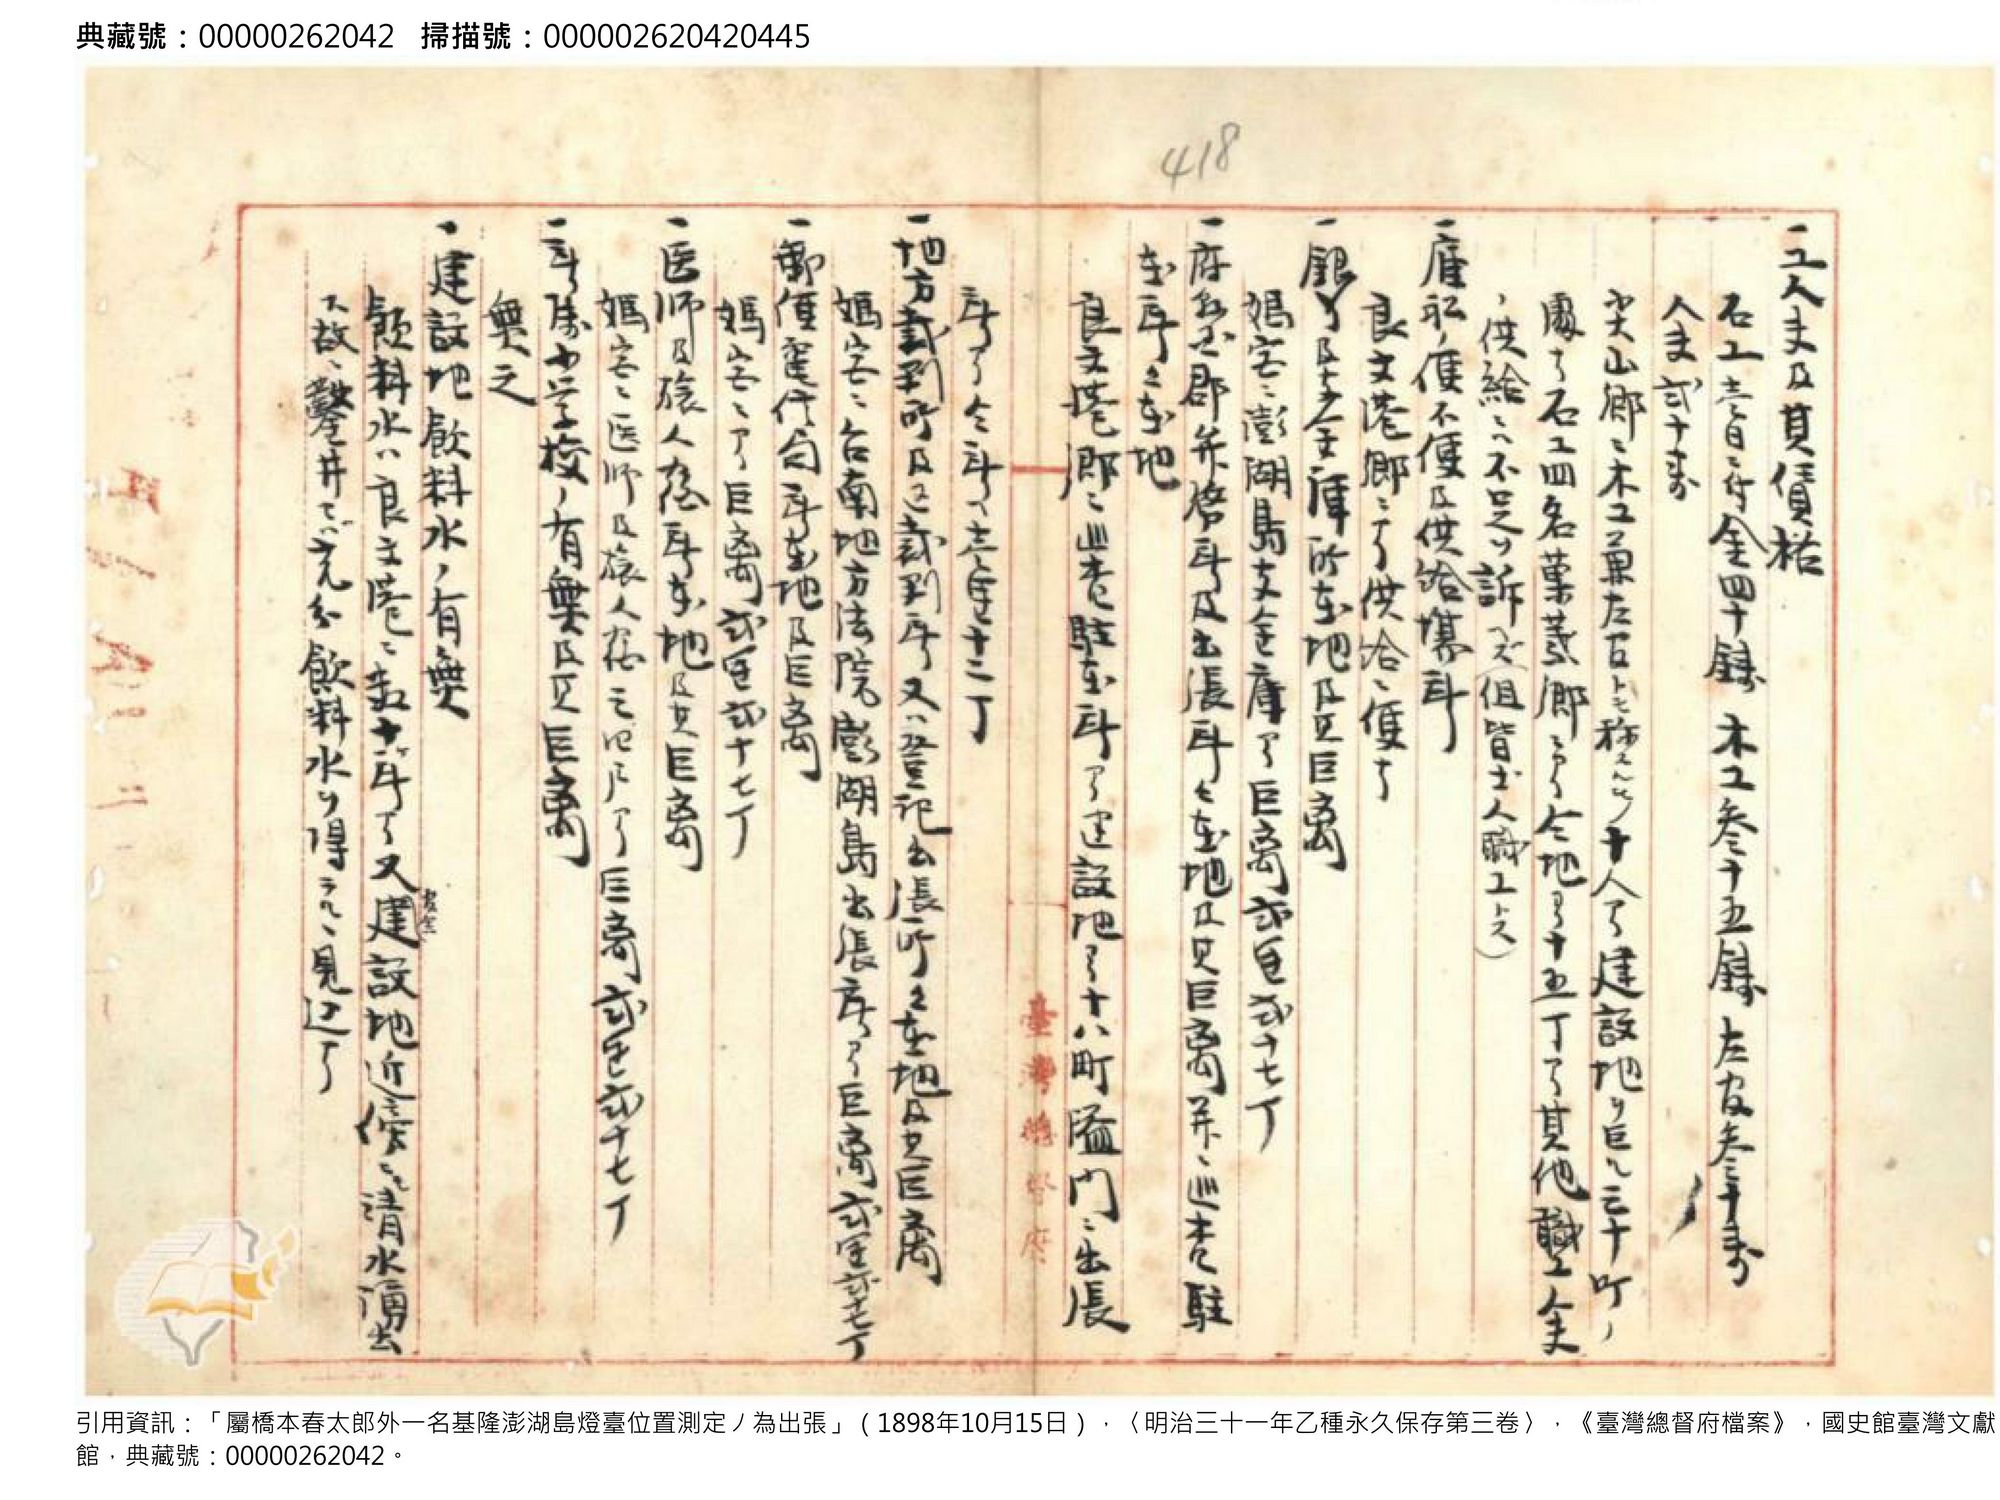 典藏號：00000262042 掃描號：000002620420445
418
一工人夫及其賃格
石工壹日ニ付金四十錢 木工参十五錢 左官参十錢
人夫弐十錢
尖山郷ニ木工兼左官トモ称スヘキ 十人アリ建設地ヲ巨ル三十町ノ
處ナリ石工四名菓葉郷ニアリ仝地ヨリ十五丁ナリ其他職工人夫
ノ供給ニハ不足ヲ訴ヘズ(但皆土人職工トス)
一雇船ノ便不便及供給場所
良文港郷ニアリ供給ニ便ナリ
一銀行及本金庫所在地及其巨离
媽宮ニ澎湖島支金庫アリ巨离弐里弐十七丁
一府県郡并登所及出張所々在地及其巨离并ニ巡査駐
在所々在地
良文港郷ニ巡査駐在所アリ建設地ヨリ十八町隘門ニ出張
所アリ仝所ヘ壱里十二丁
一地方裁判所及区裁判所又ハ登記出張所々在地及其巨离
媽宮ニ台南地方法院澎湖島出張所アリ巨离弐里弐十七丁
一郵便電信局所在地及巨离
媽宮ニアリ巨离弐里弐十七丁
一医師及旅人宿所在地及其巨离
媽宮ニ医師及旅人宿三四戸アリ巨离弐里弐十七丁
一所属小学校ノ有無及其巨离
無之
一建設地飲料水ノ有無
飲料水ハ良文港ニ数十ヶ所アリ又建設地近傍ニモ清水湧出
ス故ニ鑿井セバ充分飲料水ヲ得ラルヽ見込ナリ
臺灣總督府
引用資訊：「屬橋本春太郎外一名基隆澎湖島燈臺位置測定ノ為出張」（1898年10月15日），〈明治三十一年乙種永久保存第三卷〉，《臺灣總督府檔案》，國史館臺灣文獻
館，典藏號：00000262042。